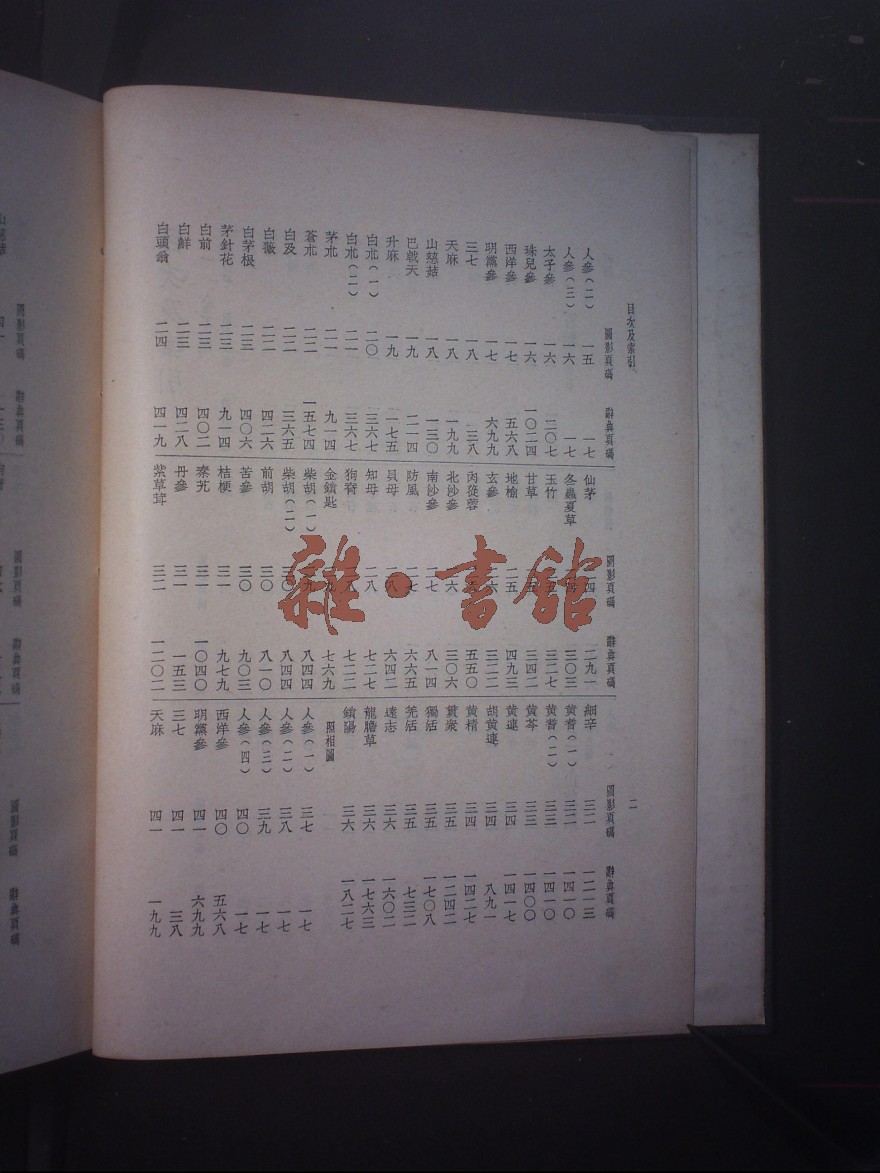 目次及索引
二
圖影頁碼 辭典頁碼
人參(二) 一五 一七
人參(三) 一六 一七
太子參 一六 二〇七
珠兒參 一六 一〇二四
西洋參 一七 五六八
明黨參 一七 六九九
三七 一八 三八
天麻 一八 一九九
山慈菇 一八 一三〇
巴戟天 一九 二一四
升麻 一九 一七五
白朮(一) 二〇 三六七
白朮(二) 二一 三六七
茅朮 二一 九一四
蒼朮 二二 一五七四
白及 二二 三六五
白薇 二二 四二六
白茅根 二三 四〇六
茅針花 二三 九一四
白前 二三 四〇二
白鮮 二三 四二八
白頭翁 二四 四一九
圖影頁碼 辭典頁碼
仙茅 二四 二九一
冬蟲夏草 三〇三
玉竹 三二七
甘草 三四二
地榆 二五 四九三
玄參 二六 三二二
肉蓯蓉 五五〇
北沙參 二六 三〇六
南沙參 二七 八一四
防風 二七 六六五
貝母 二八 六四二
知母 二八 七二七
狗脊 二八 七二二
金鎖匙 七六九
柴胡(一) 八四四
柴胡(二) 三〇 八四四
前胡 三〇 八一〇
苦參 三〇 九〇三
桔梗 三一 九七九
秦艽 三一 一〇四〇
丹參 三一 一五三
紫草茸 三二 一二〇二
圖影頁碼 辭典頁碼
細辛 三二 一二一三
黃耆(一) 三二 一四一〇
黃耆(二) 三三 一四一〇
黃芩 三三 一四〇〇
黃連 三四 一四一七
胡黃連 三四 八九一
黃精 三四 一四二七
貫衆 三五 一二四二
獨活 三五 一七〇八
羌活 三五 七三二
遠志 三六 一六〇二
龍膽草 三六 一七六三
鎖陽 三六 一八二七
照相圖
人參(一) 三七 一七
人參(二) 三八 一七
人參(三) 三九 一七
人參(四) 四〇 一七
西洋參 四〇 五六八
明黨參 四一 六九九
三七 四一 三八
天麻 四一 一九九
雜·書館
圖影頁碼 辭典頁碼
圖影頁碼 辭典頁碼
圖影頁碼 辭典頁碼